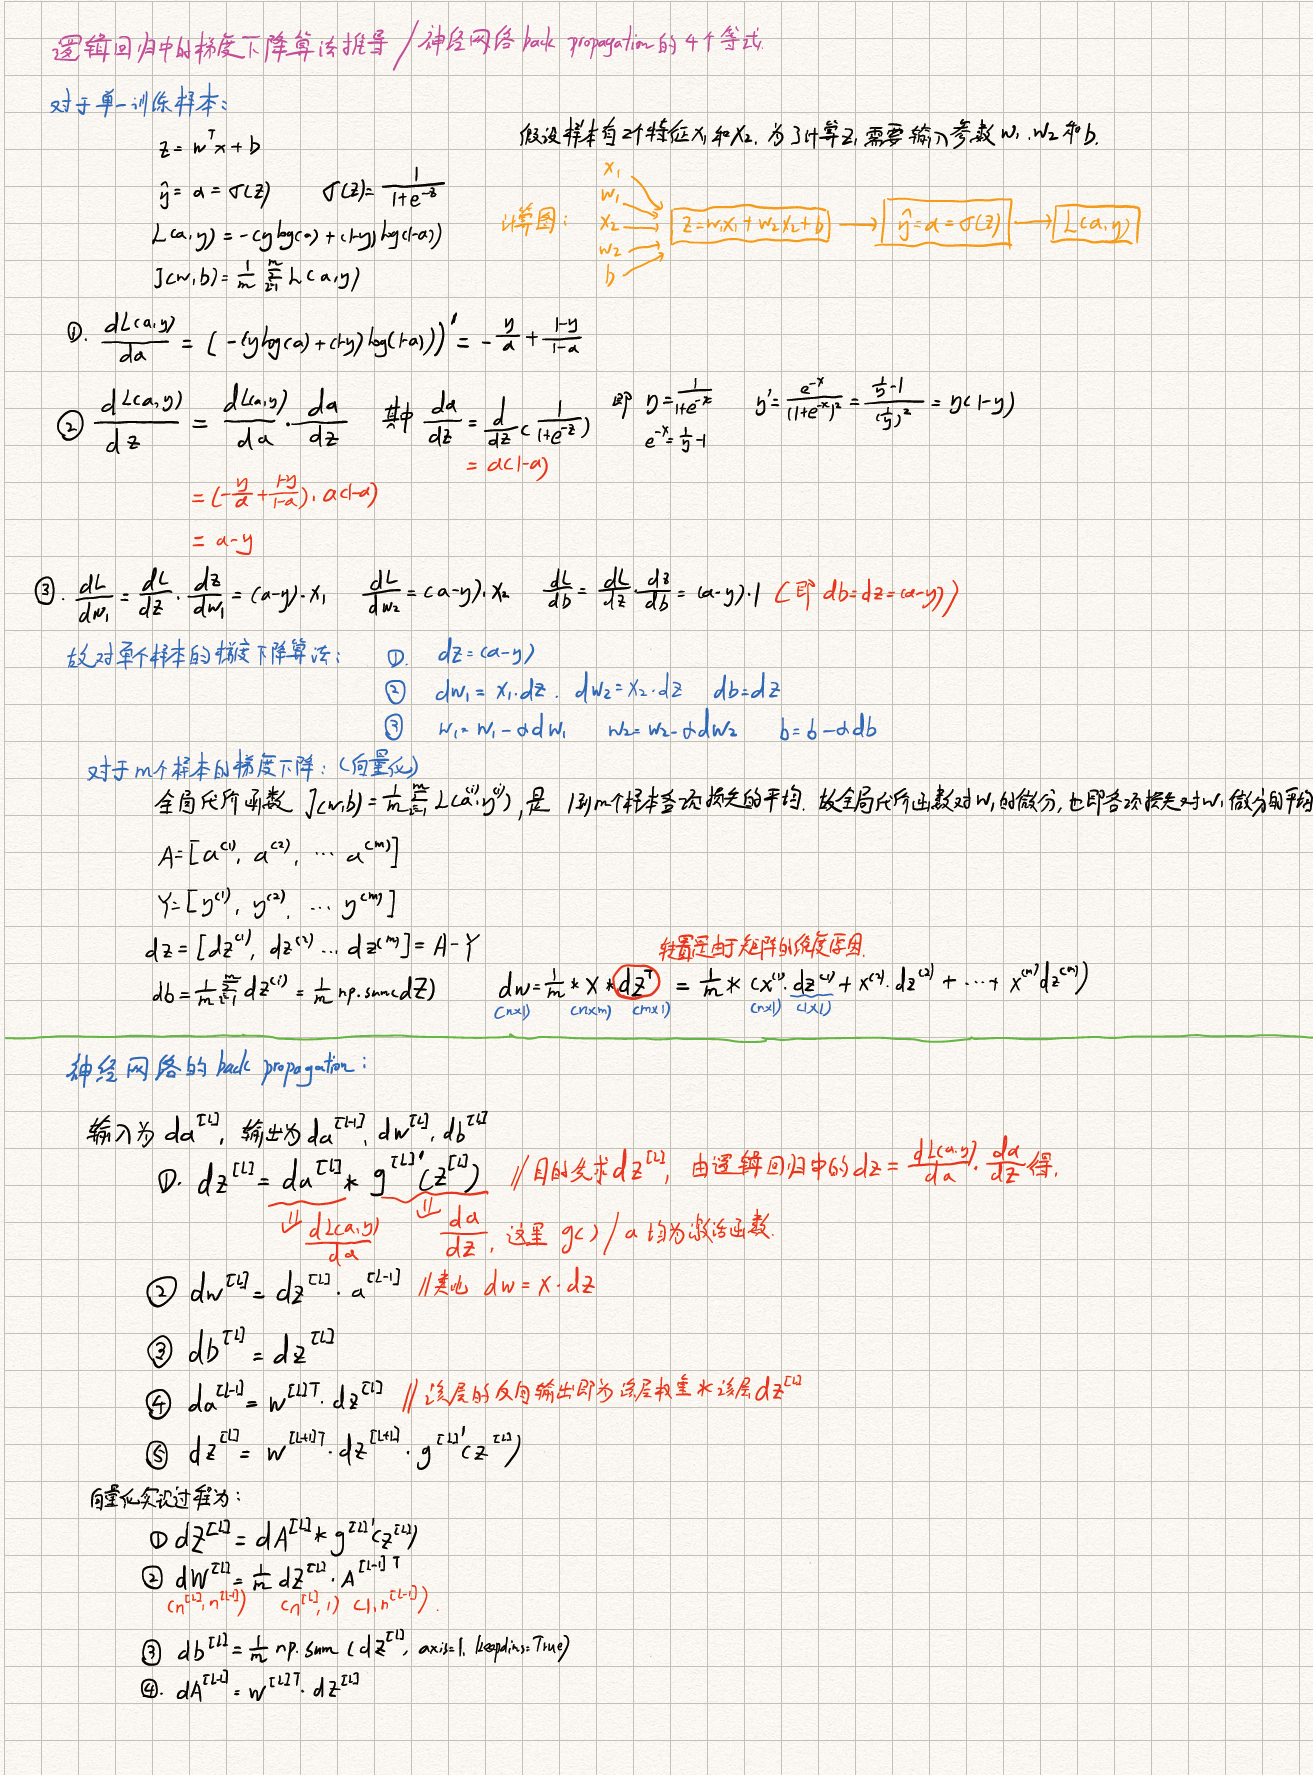 逻辑回归中的梯度下降算法推导 / 神经网络 back propagation 的 4 个等式.
对于单一训练样本:
z = w^T x + b
假设样本有2个特征 x₁ 和 x₂. 为了计算 z, 需要输入参数 w₁, w₂ 和 b.
ŷ = a = σ(z)   σ(z) = 1/(1+e^{-z})
L(a,y) = -(y log(a) + (1-y) log(1-a))
J(w,b) = 1/m Σ_{i=1}^{m} L(a,y)
计算图:
x₁
w₁
x₂
w₂
b
z = w₁x₁ + w₂x₂ + b → ŷ = a = σ(z) → L(a,y)
①. dL(a,y)/da = (-(y log(a) + (1-y) log(1-a)))' = -y/a + (1-y)/(1-a)
② dL(a,y)/dz = dL(a,y)/da · da/dz   其中 da/dz = d/dz (1/(1+e^{-z}))   即 y = 1/(1+e^{-x})   y' = e^{-x}/(1+e^{-x})² = (1/y - 1)/(1/y)² = y(1-y)
e^{-x} = 1/y - 1
= a(1-a)
= (-y/a + (1-y)/(1-a)) · a(1-a)
= a-y
③. dL/dw₁ = dL/dz · dz/dw₁ = (a-y)·x₁   dL/dw₂ = (a-y)·x₂   dL/db = dL/dz · dz/db = (a-y)·1 (即 db=dz=(a-y))
故对单个样本的梯度下降算法:   ①. dz = (a-y)
② dw₁ = x₁·dz. dw₂ = x₂·dz   db=dz
③ w₁ = w₁ - αdw₁   w₂ = w₂ - αdw₂   b = b - αdb
对于m个样本的梯度下降: (向量化)
全局代价函数 J(w,b) = 1/m Σ_{i=1}^{m} L(a^{(i)}, y^{(i)}), 是 1到m个样本各项损失的平均. 故全局代价函数对 w₁ 的微分, 也即各项损失对 w₁ 微分的平均
A = [a^{(1)}, a^{(2)}, ⋯ a^{(m)}]
Y = [y^{(1)}, y^{(2)}, ⋯ y^{(m)}]
dz = [dz^{(1)}, dz^{(2)} ⋯ dz^{(m)}] = A-Y
转置是由于矩阵的维度原因.
db = 1/m Σ_{i=1}^{m} dz^{(i)} = 1/m np.sum(dZ)   dw = 1/m * X * dz^T = 1/m * (x^{(1)}·dz^{(1)} + x^{(2)}·dz^{(2)} + ⋯ + x^{(m)}dz^{(m)})
(n×1) (n×m) (m×1) (n×1) (1×1)
神经网络的 back propagation:
输入为 da^{[L]}, 输出为 da^{[L-1]}, dw^{[L]}, db^{[L]}
①. dz^{[L]} = da^{[L]} * g^{[L]}'(z^{[L]})   // 目的先求 dz^{[L]}, 由逻辑回归中的 dz = dL(a,y)/da · da/dz 得.
dL(a,y)/da   da/dz, 这里 g() / a 均为激活函数.
② dw^{[L]} = dz^{[L]} · a^{[L-1]}   // 类比 dw = x·dz
③ db^{[L]} = dz^{[L]}
④ da^{[L-1]} = w^{[L]T} · dz^{[L]}   // 该层的反向输出即为该层权重 * 该层 dz^{[L]}
⑤ dz^{[L]} = w^{[L+1]T} · dz^{[L+1]} · g^{[L]}'(z^{[L]})
向量化实现过程为:
① dZ^{[L]} = dA^{[L]} * g^{[L]}'(z^{[L]})
② dW^{[L]} = 1/m dZ^{[L]} · A^{[L-1]T}
(n^{[L]}, n^{[L-1]})   (n^{[L]}, 1) (1, n^{[L-1]}).
③ db^{[L]} = 1/m np.sum(dZ^{[L]}, axis=1, keepdims=True)
④. dA^{[L-1]} = w^{[L]T} · dZ^{[L]}